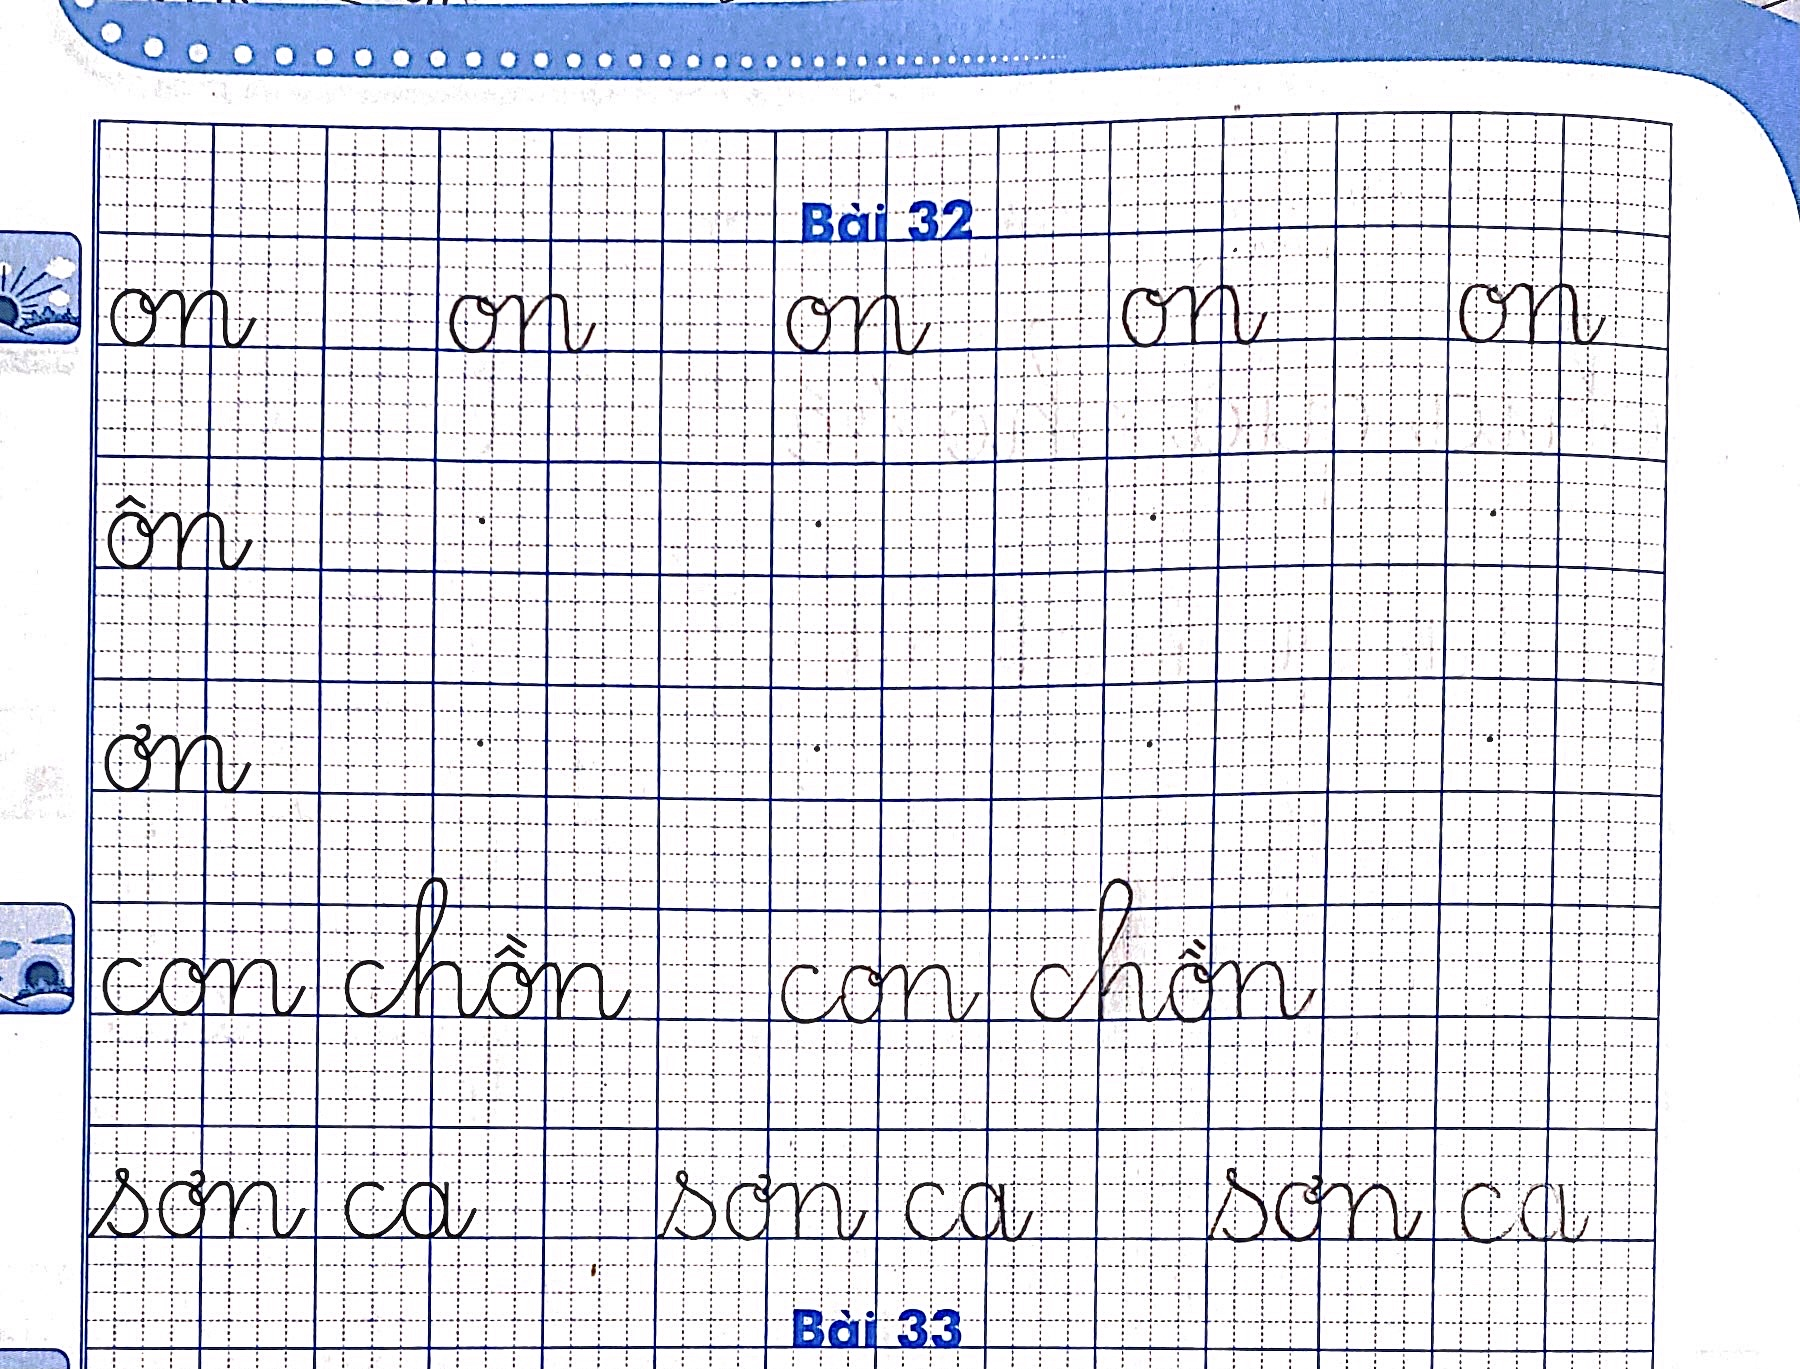 Bài 32
on on on on on
ôn
ơn
con chồn con chồn
sơn ca sơn ca sơn ca
Bài 33